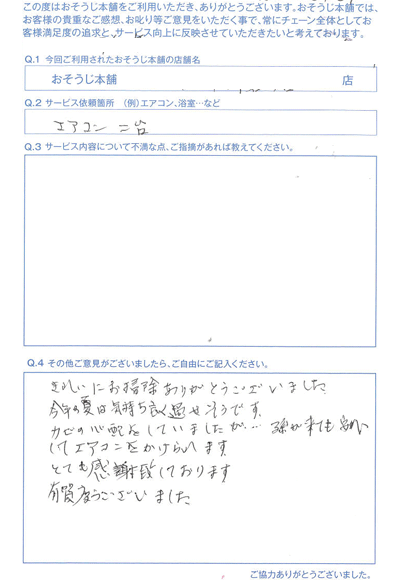 この度はおそうじ本舗をご利用いただき、ありがとうございます。おそうじ本舗では、
お客様の貴重なご感想、お叱り等ご意見をいただく事で、常にチェーン全体としてお
客様満足度の追求と、サービス向上に反映させていただきたいと考えております。
Q.1 今回ご利用されたおそうじ本舗の店舗名
おそうじ本舗 店
Q.2 サービス依頼箇所 (例)エアコン、浴室…など
エアコン 二台
Q.3 サービス内容について不満な点、ご指摘があれば教えてください。
Q.4 その他ご意見がございましたら、ご自由にご記入ください。
きれいにお掃除ありがとうございました
今年の夏は気持ち良く過せそうです。
カビの心配をしていましたが… 孫が来ても安心
してエアコンをかけられます
とても感謝致しております
有難うございました
ご協力ありがとうございました。